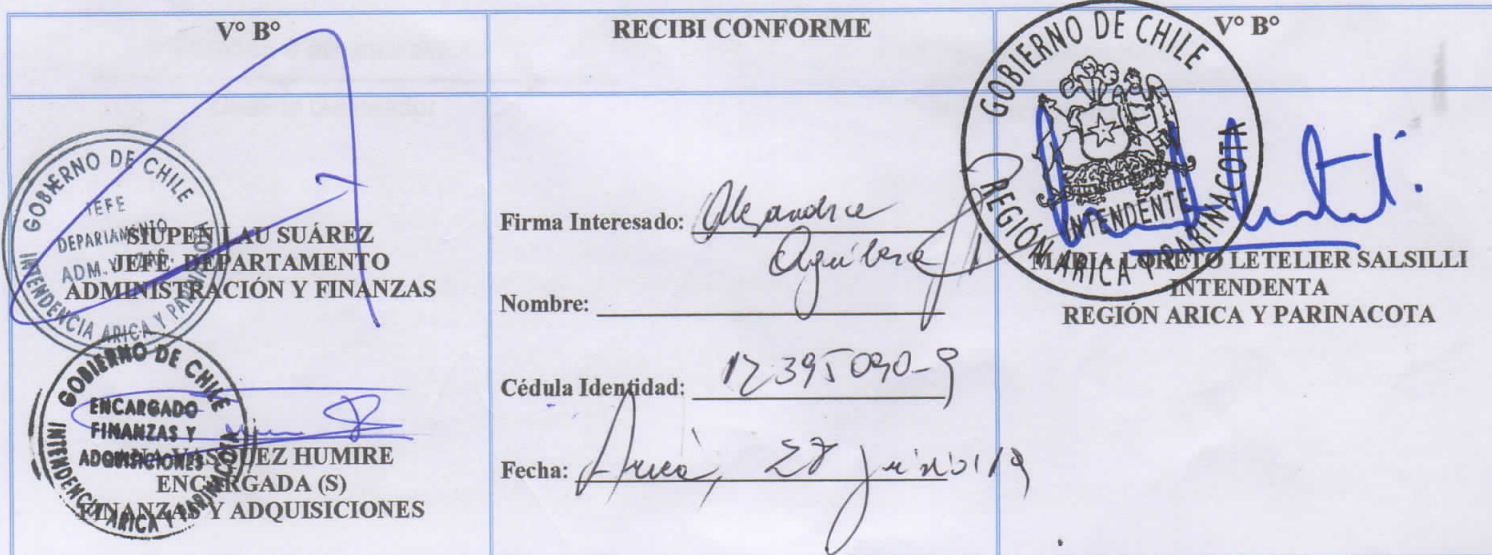 V° B°
RECIBI CONFORME
V° B°
GOBIERNO DE CHILE
JEFE
DEPARTAMENTO
ADM. Y
INTENDENCIA ARICA Y PARINACOTA
SIUPEN LAU SUÁREZ
JEFE DEPARTAMENTO
ADMINISTRACIÓN Y FINANZAS
GOBIERNO DE CHILE
ENCARGADO
FINANZAS Y
ADQUISICIONES
INTENDENCIA ARICA Y PARINACOTA
VASQUEZ HUMIRE
ENCARGADA (S)
FINANZAS Y ADQUISICIONES
Firma Interesado: Alejandra
Aguilera
Nombre:
Cédula Identidad: 12395090-9
Fecha: Arica, 27 junio 19
GOBIERNO DE CHILE
INTENDENTE
REGIÓN ARICA Y PARINACOTA
MARIA LORETO LETELIER SALSILLI
INTENDENTA
REGIÓN ARICA Y PARINACOTA